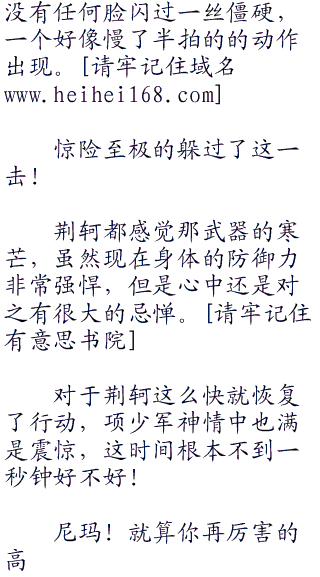 没有任何脸闪过一丝僵硬，
一个好像慢了半拍的的动作
出现。[请牢记住域名
www.heihei168.com]
惊险至极的躲过了这一
击！
荆轲都感觉那武器的寒
芒，虽然现在身体的防御力
非常强悍，但是心中还是对
之有很大的忌惮。[请牢记住
有意思书院]
对于荆轲这么快就恢复
了行动，项少军神情中也满
是震惊，这时间根本不到一
秒钟好不好！
尼玛！就算你再厉害的
高